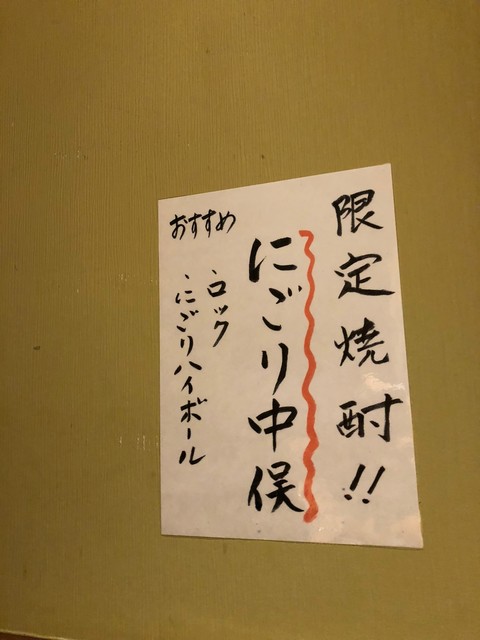 限定焼酎!!
にごり中俣
おすすめ
・ロック
・にごりハイボール